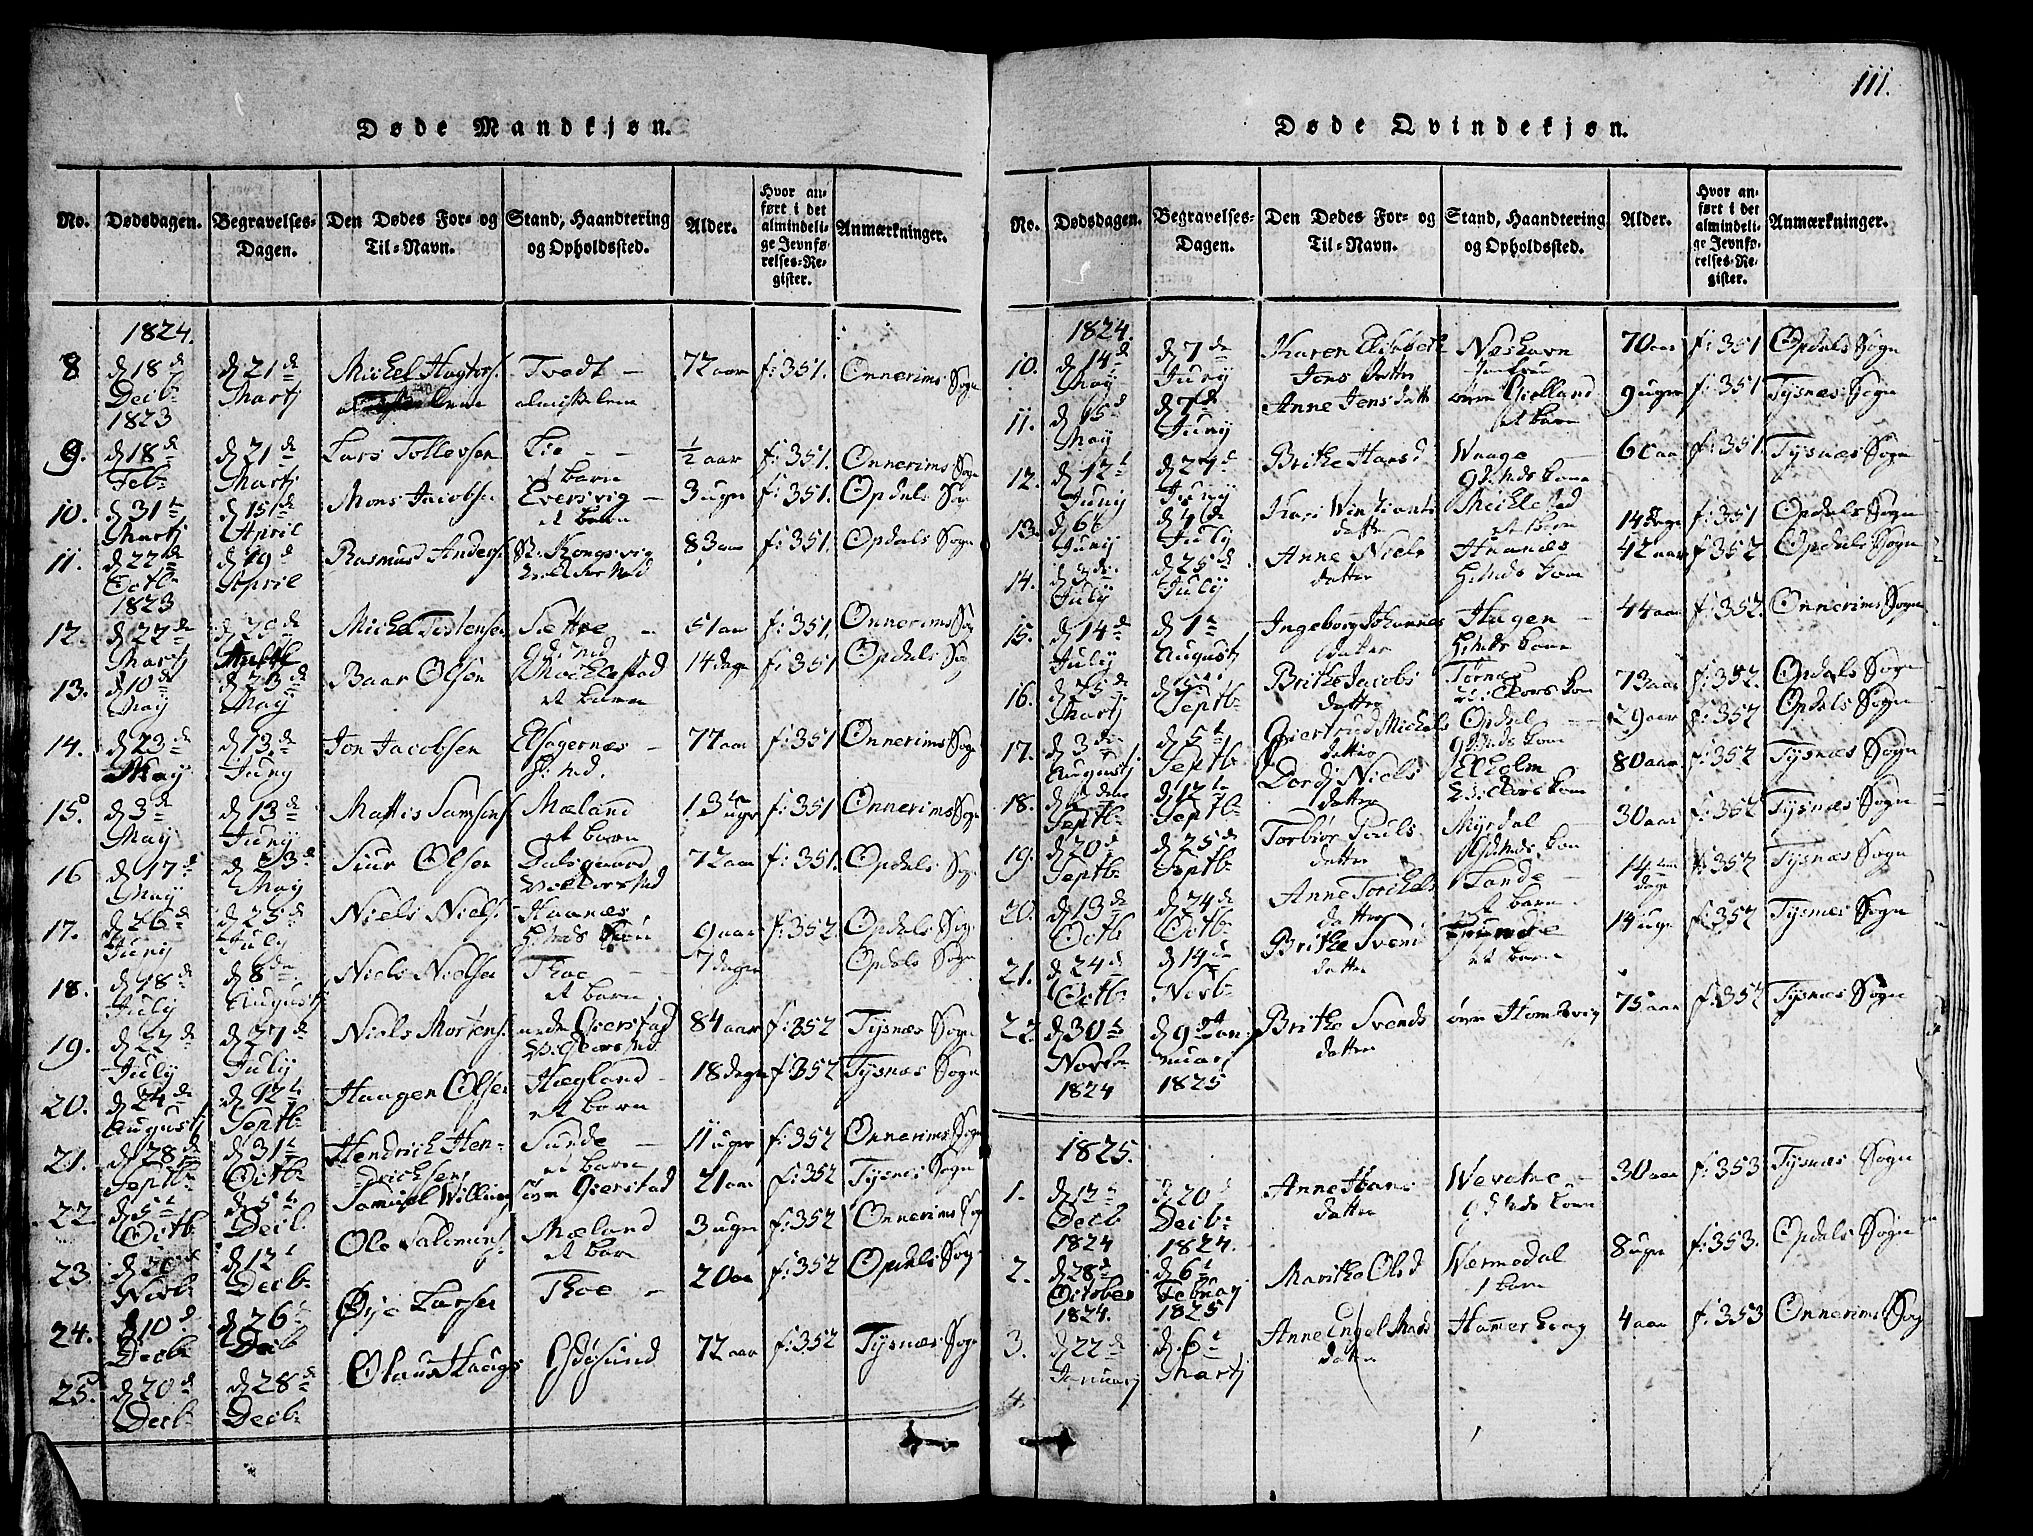 111.
Døde Mandkjøn.
No. Dødsdagen. Begravelses-Dagen. Den Dødes For- og Til-Navn. Stand, Haandtering og Opholdssted. Alder. Hvor anført i det almindelige Jevnførelses-Register. Anmærkninger.
1824.
8 d 18de Decbr 1823 d 21de Martj Michel Tvedt - almisselem 72 aar f: 351. Onnerims Sogn
9. d 18de Febr d 21de Martj Lars Tollevsen Lie - - et barn ½ aar f: 351. Onnerims Sogn
10. d 31te Martj d 15de April Mons Jacobsen Eversvig - et barn 3 uger f: 351. Opdals Sogn
11. d 22de Octbr 1823 d 19d April Rasmus Anders. 83 aar f: 351. Opdals Sogn
12. d 22de Martj d 29de Michel Tostensen Sættre - gdmd 51 aar f: 351. Onnerims Sogn
13. d 10de May d 23de May Baar Olsen Mochlestad et barn 14 dage f: 351 Opdals Sog
14. d 23de May d 13de Juny Jon Jacobsen - 77 aar f: 351 Onnerims Sogn
15. d 3de May d 13de Juny Mattis Samsons. Mæland et barn 13 uger f: 351 Onnerims Sogn
16 d 17de May d 23de May Siur Olsen Dalsgaard 72 aar f: 351. Opdals Sogn
17. d 26de Juny d 25de July Niels Niels. Haanæs 9 aar f: 352 Opdals Sogn
18. d 18de July d 8de Augustj Niels Nielsen Thoe - - et barn 7 dage Opdals Sogn
19. d 22de July d 27de July Niels Mortens. nedre Gierstad 84 aar f: 352 Tysnæs Sogn
20. d 24de Augustj d 12te Septbr Haagen Olsen Hægland - et barn 18 dage f: 352 Tysnæs Sogn
21. d 28de Septbr d 31te Octbr Hendrich Hendrichsen Sunde - et barn 11 uger f: 352 Onnerims Sogn
22 d 5te Octbr d 5te Decbr. Samuel Willums. Gierstad 21 aar f: 352 Tysnæs Sogn
23. Novbr d 12te Decbr Ole Salamons. Mæland et barn 3 uger f: 352 Onnerims Sog
24. d 10de Decbr d 26te Decbr Larsen Thoe - 20 aar f: 352 Opdals Sog
25. d 20de Decbr d 28de Decbr Olaus Haugs Godøsund 72 aar f: 352 Tysnæs Sogn
Døde Qvindekjøn.
No. Dødsdagen. Begravelses-Dagen. Den Dødes For- og Til-Navn. Stand, Haandtering og Opholdssted. Alder. Hvor anført i det almindelige Jevnførelses-Register. Anmærkninger.
1824.
10. d 14de May d 7de Juny Karen Elisbeth Jons Datter Næshavn 70 aar f: 351 Opdals Sogn
11. d 15de May d 7de Juny Anne Jens datter øvre Gielland et barn 9 uger f: 351 Tysnæs Sogn
12. d 12te Juny d 24de Juny Brithe Hans d Waage - gdmds kone 60 aar f: 351. Tysnæs Sogn
13. d 6te Juny d 4de July Kari datter Michlestad et barn 14 dage f: 351 Opdals Sogn
14. d 3de July d 25de July Anne Niels datter Haanæs gdmds kone 42 aar f: 352 Opdals Sogn
15. d 14de July d 1te Augustj Ingeborg Johannes datter Haugen - kone 44 aar f: 352. Onnerims Sogn
16. d 25de Martj Septbr Brithe Jacobs datter Tørnæs kone 73 aar f: 352. Opdals Sogn
17. d 3de Augustj d 5te Septbr Giertrud Michels datter Opdal - gdmds kone 29 aar f: 352 Opdals Sogn
18. Septbr d 12te Septbr Dordj Niels datter kone 80 aar f: 352 Tysnæs Sogn
19. d 20de Septbr d 25de Septbr Torbiør Pouls datter Myrdal - gdmds kone 30 aar f: 352 Tysnæs Sogn
20. d 13de Octbr d 24de Octbr Anne Torchels datter Lande - et barn 14 dage f: 352 Tysnæs Sogn
21. d 24de Octbr d 14de Novbr Brithe Svends datter et barn 14 uger f: 352 Tysnæs Sogn
22. d 30te Novbr 1824 d 9de Januarj 1825 Brithe Svends datter øvre 75 aar f: 352 Tysnæs Sogn
1825.
1. d 12te Decbr 1824 d 20de Decbr 1824. Anne Hans datter gdmds kone 30 aar f: 353 Tysnæs Sogn
2. d 28de October 1824. d 6te Februarj 1825 Marithe Ols d Wermedal 1 barn 8 uger f: 353. Opdals Sogn
3. d 22de Januarj d 6te Martj Anne Engel Mads datter Hamer 4 aar f: 353 Onnerims Sog
4.